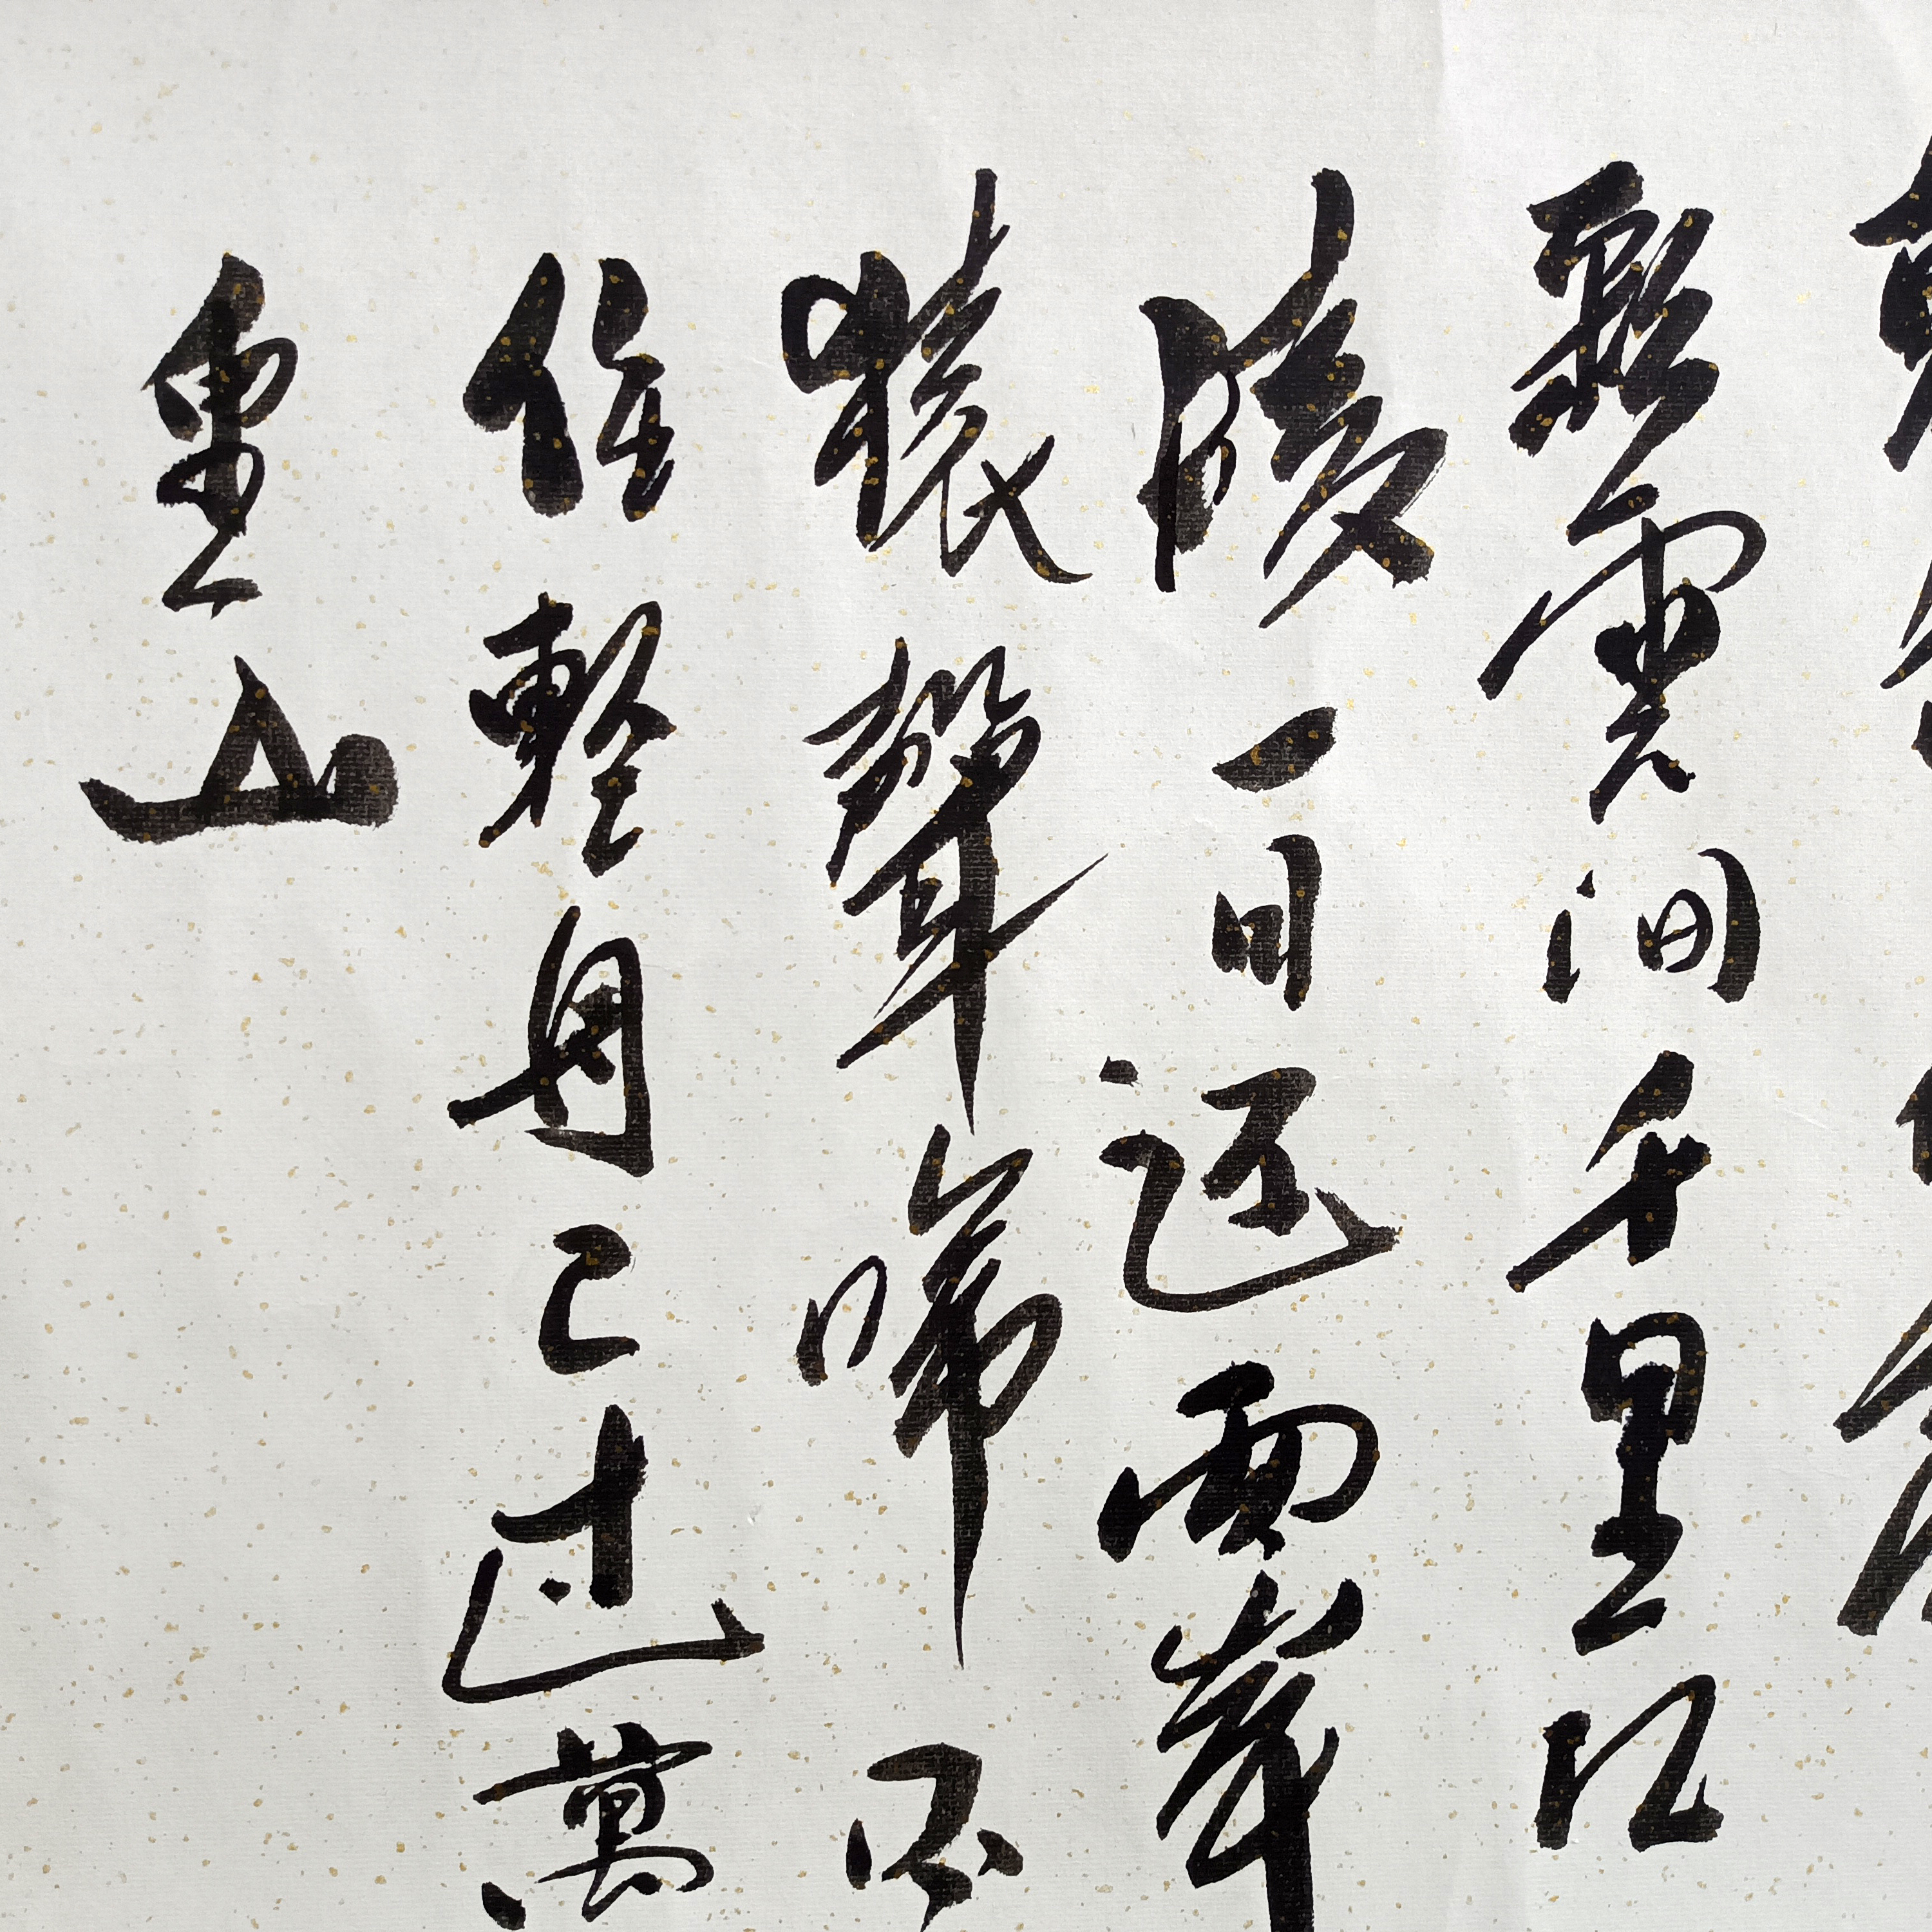 彩雲間千里江
陵一日還兩岸
猿聲啼不
住輕舟已過萬
重山